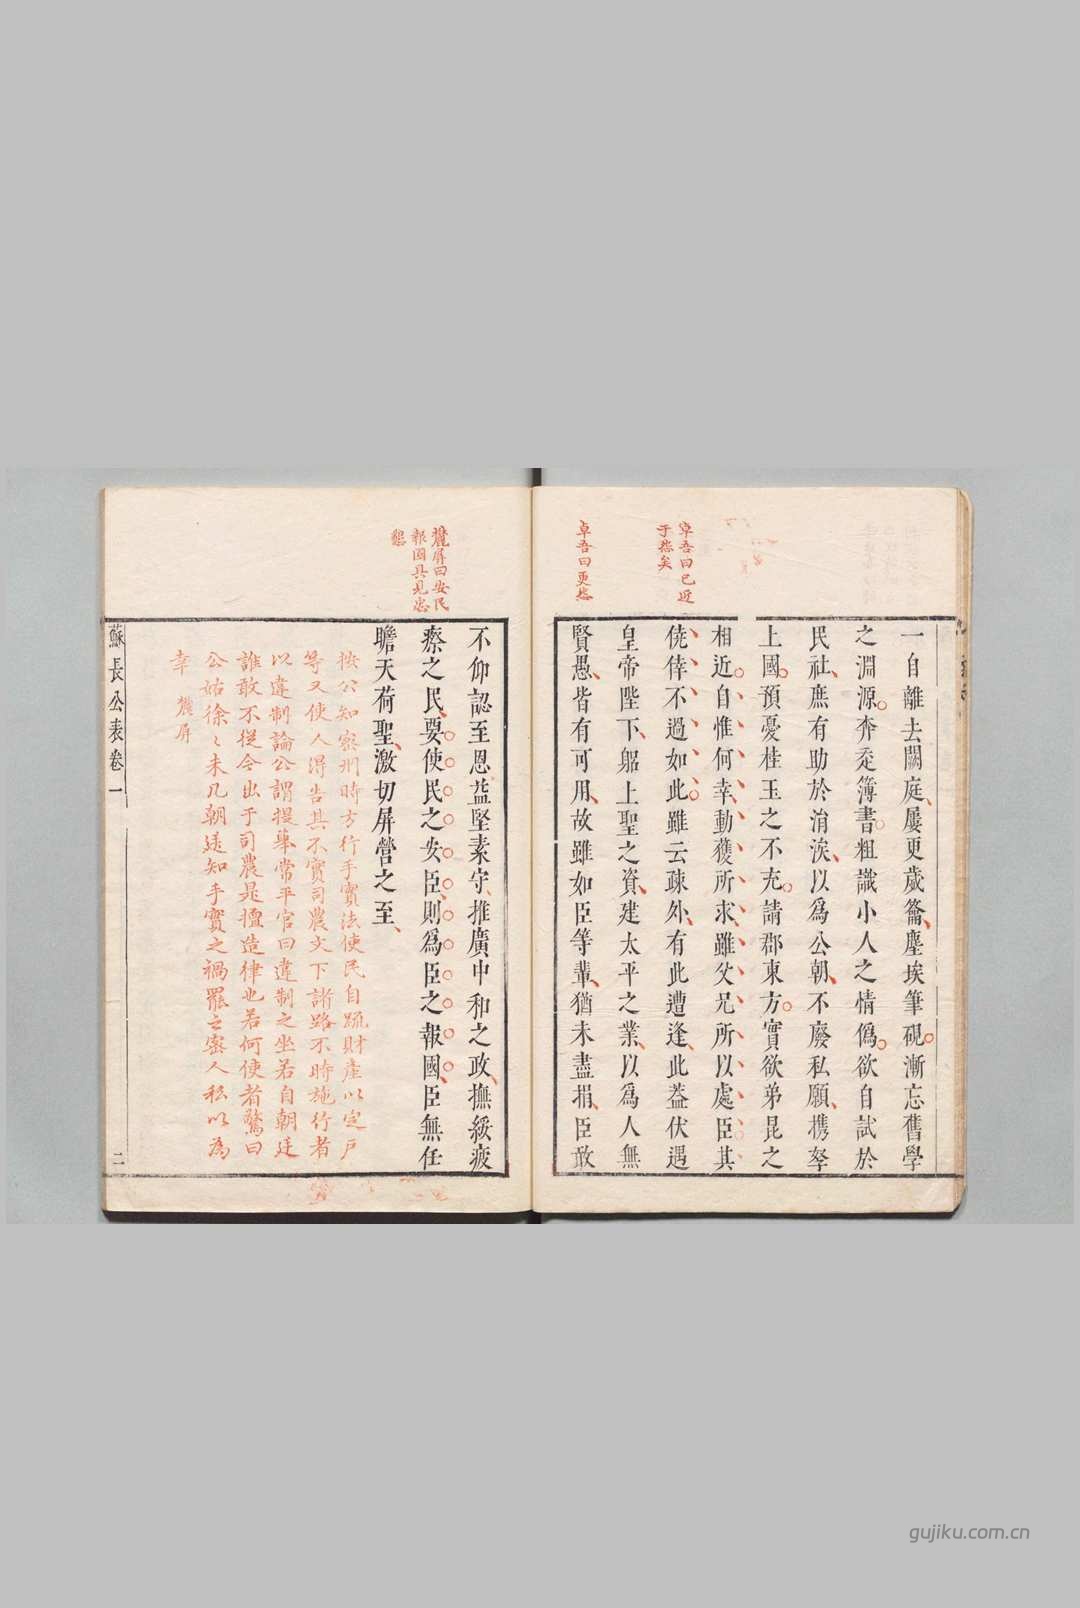 卓吾曰已近
于愁矣
卓吾曰更愁
一自離去闕庭屢更歲籥塵埃筆硯漸忘舊學
之淵源奔走簿書粗識小人之情僞欲自試於
民社庶有助於涓涘以爲公朝不廢私願携孥
上國預憂桂玉之不充請郡東方實欲弟昆之
相近自惟何幸動獲所求雖父兄所以處臣其
僥倖不過如此雖云疎外有此遭逢此葢伏遇
皇帝陛下躬上聖之資建太平之業以爲人無
賢愚皆有可用故雖如臣等輩猶未盡捐臣敢
麓屏曰安民
報國具見忠
懇
不仰認至恩益堅素守推廣中和之政撫綏疲
瘵之民要使民之安臣則爲臣之報國臣無任
瞻天荷聖激切屏營之至
按公知密州時方行手實法使民自疏財產以定戶
等又使人得告其不實司農文下諸路不時施行者
以違制論公謂提舉常平官曰違制之坐若自朝廷
誰敢不從今出于司農是擅造律也若何使者驚曰
公姑徐〻未几朝廷知手實之禍罷之密人私以爲
幸　麓屏
蘇長公表卷一
二
gujiku.com.cn